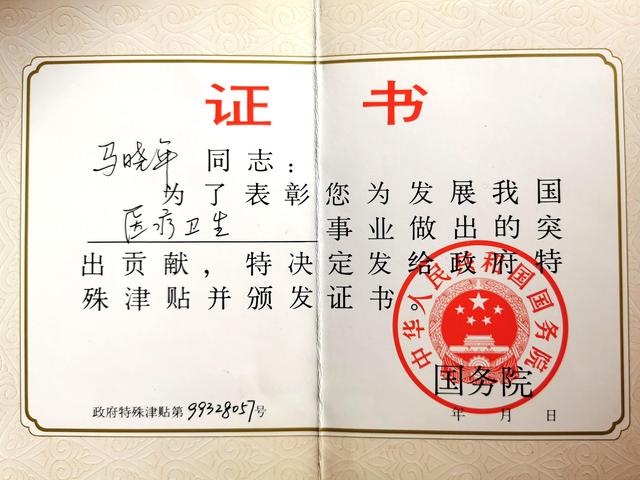 证书
马晓年 同志：
为了表彰您为发展我国
医疗卫生 事业做出的突
出贡献，特决定发给政府特
殊津贴并颁发证书。
中华人民共和国国务院
国务院
政府特殊津贴第99328057号
年 月 日